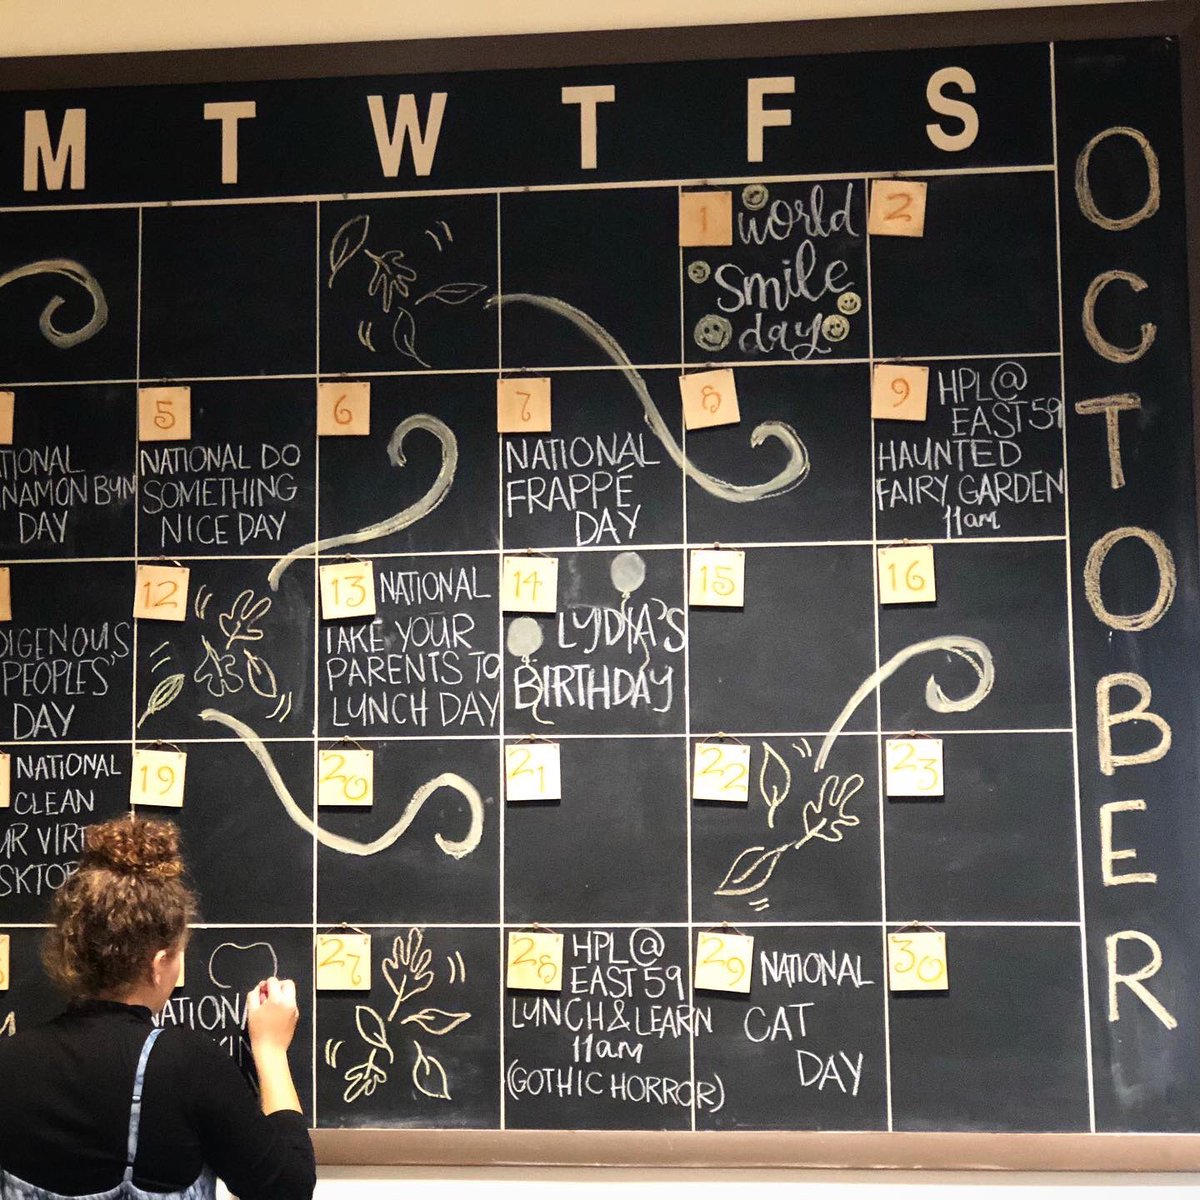 M T W T F S
OCTOBER
1 World
Smile
day
2
TIONAL
NAMON BUN
DAY
5
NATIONAL DO
SOMETHING
NICE DAY
6
7
NATIONAL
FRAPPÉ
DAY
8
9 HPL@
EAST 59
HAUNTED
FAIRY GARDEN
11am
DIGENOUS
PEOPLES'
DAY
12
13 NATIONAL
TAKE YOUR
PARENTS TO
LUNCH DAY
14
LYDIA'S
BIRTHDAY
15
16
NATIONAL
CLEAN
UR VIRT
SKTO
19
20
21
22
23
NATION
27
28 HPL@
EAST 59
LUNCH & LEARN
11am
(GOTHIC HORROR)
29 NATIONAL
CAT
DAY
30